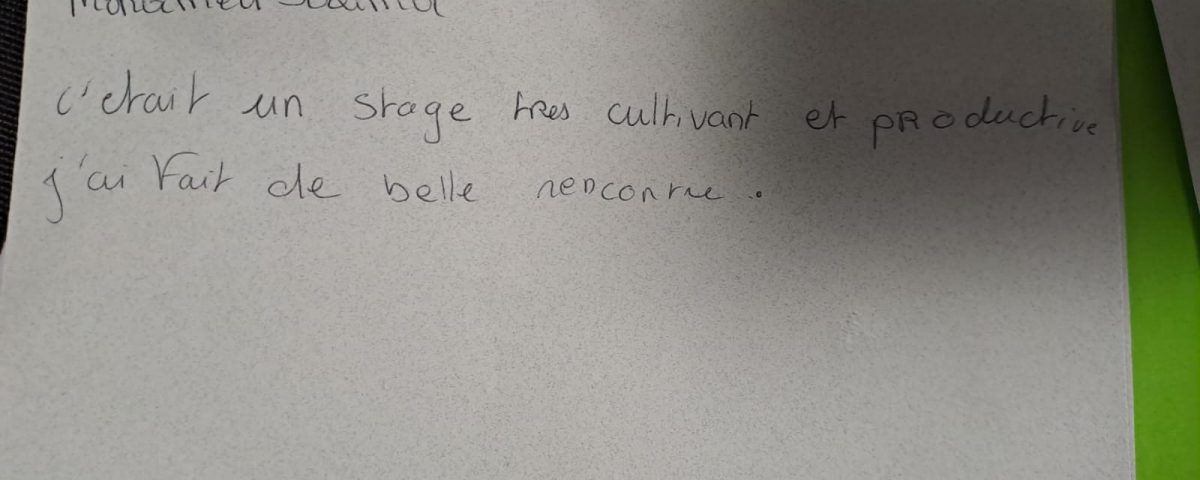 c'etait un stage tres cultivant et productive
j'ai fait de belle rencontre.